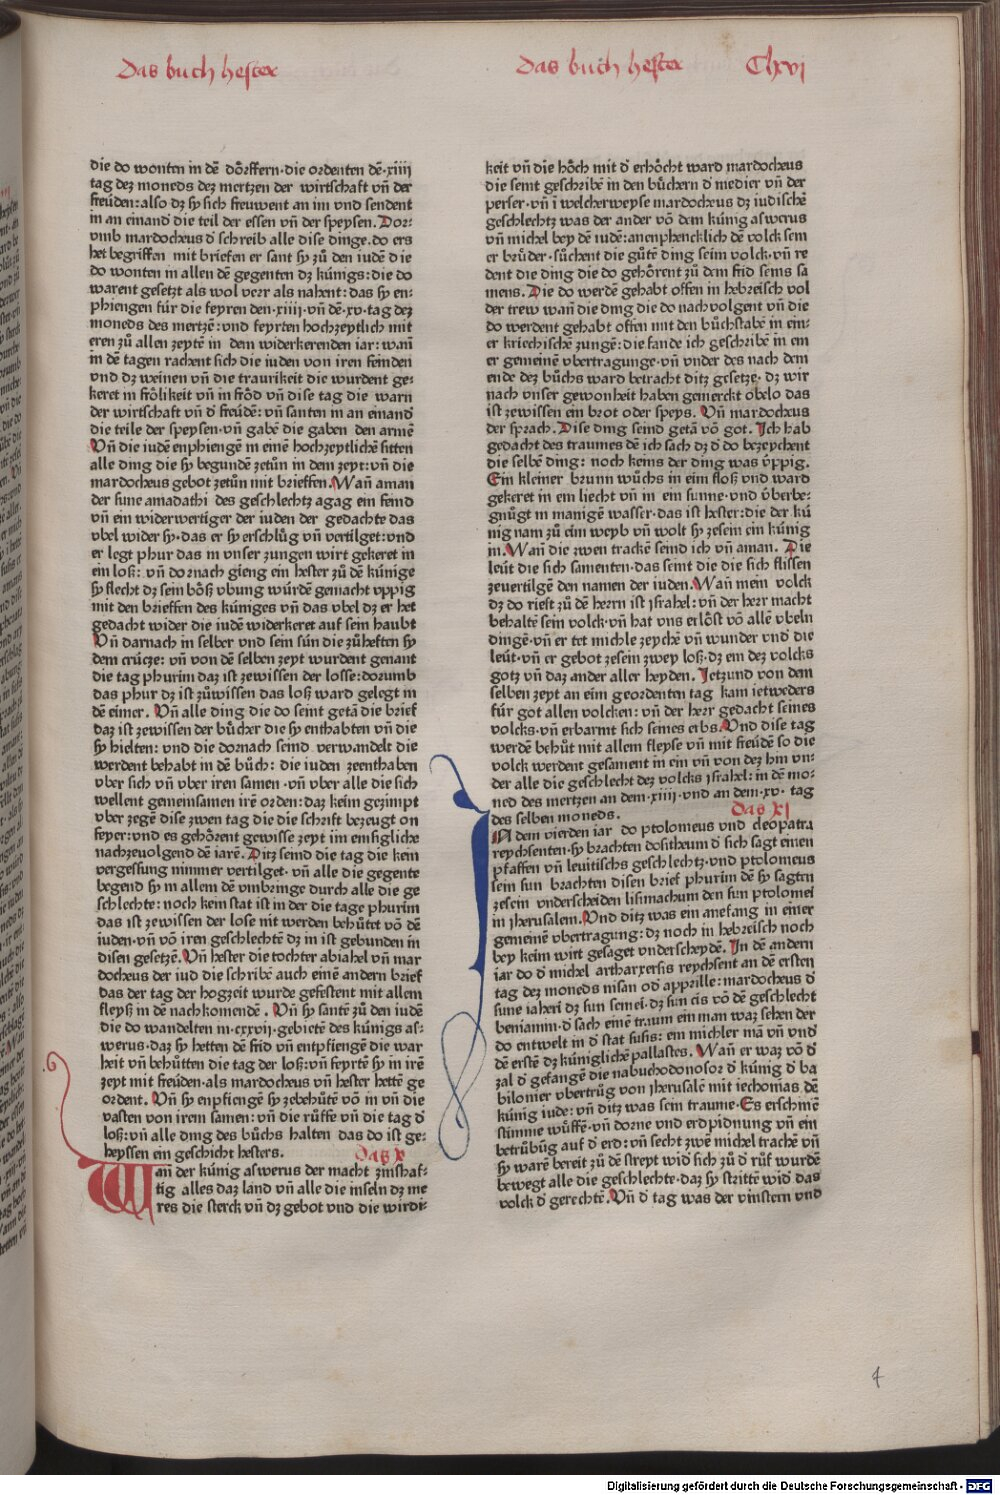 das buch hester
das buch hester Chxvj
die do wonten in dē dörffern·die ordenten dē·xiiij
tag dez moneds dez mertzen der wirtschaft vn̄ der
freüden:also dz sy sich freuwent an im vnd sendent
in an einand̛ die teil der essen vn̄ der speysen. Dor:
vmb mardocheus d̛ schreib alle dise dinge.do ers
het begriffen mit briefen er sant sy zů den iudē die
do wonten in allen dē gegenten dz künigs:die do
warent gesetzt als wol verr als nahent:das sy en-
phiengen für die feyren den·xiiij·vn̄ dē·xv·tag dez
moneds des mertzē:vnd feyrten hochzeytlich mit
eren zů allen zeytē in dem widerkerenden iar:wan̄
in dē tagen rachent sich die iuden von iren feinden
vnd dz weinen vn̄ die traurikeit die wurdent ge-
keret in frölikeit vn̄ in fröd vn̄ dise tag die warn
der wirtschaft vn̄ d̛ freüdē:vn̄ santen in an einand̛
die teile der speysen·vn̄ gabē die gaben den armē
Vn̄ die iudē enphiengē in einē hochzeytlichē sitten
alle ding die sy begundē zetůn in dem zeyt:vn̄ die
mardocheus gebot zetůn mit brieffen.Wan̄ aman
der sune amadathi des geschlechtz agag ein feind
vn̄ ein widerwertiger der iuden der gedachte das
vbel wider sy·das er sy erschlůg vn̄ vertilget:vnd
er legt phur das in vnser zungen wirt gekeret in
ein loß: vn̄ dornach gieng ein hester zů dē künige
sy flecht dz sein böß vbung würdē gemacht vppig
mit den brieffen des küniges vn̄ das vbel dz er het
gedacht wider die iudē widerkeret auf sein haubt
Vn̄ darnach in selber vnd sein sün die zůheften sy
dem crücze: vn̄ von dē selben zeyt wurdent genant
die tag phurim daz ist zewissen der losse:dorumb
das phur dz ist zůwissen das loß ward gelegt in
dē eimer. Vn̄ alle ding die do seint getā die brief
daz ist zewissen der bůcher die sy enthabten vn̄ die
sy hielten: vnd die dornach seind verwandelt die
werdent behabt in dē bůch: die iuden zeenthaben
vber sich vn̄ vber iren samen ·vn̄ vber alle die sich
wellent gemeinsamen irē orden:daz keim gezimpt
vber zegē dise zwen tag die die schrift bezeugt on
feyer:vnd es gehörent gewisse zeyt im emssigliche
nachzeuolgend dē iarē. Ditz seind die tag die kein
vergessung nimmer vertilget· vn̄ alle die gegente
begend sy in allem dē vmbringe durch alle die ge
schlechte: noch kein stat ist in der die tage phurim
das ist zewissen der lose nit werden behütet vō dē
iuden·vn̄ vō iren geschlechtē dz in ist gebunden in
disen gesetzē. Vn̄ hester die tochter abiahel vn̄ mar
docheus der iud die schribē auch einē andern brief
das der tag der hogzeit wurde gefestent mit allem
fleyß in dē nachkomendē. Vn̄ sy santē zů den iudē
die do wandelten in·cxxvij·gebietē des künigs as-
werus·daz sy hetten dē frid vn̄ entpfiengē die war
heit vn̄ behůtten die tag der loß:vn̄ feyrtē sy in irē
zeyt mit freüden·als mardocheus vn̄ hester hettē ge
ordent. Vn̄ sy enpfiengē sy zebehůtē vō in vn̄ die
vasten von irem samen:vn̄ die růffe vn̄ die tag d̛
loß:vn̄ alle ding des bůchs halten das do ist ge-
heyssen ein geschicht hesters.
das x
Wan̄ der künig aswerus der macht zinßhaf-
tig alles daz land vn̄ alle die inseln dz me
res die sterck vn̄ dz gebot vnd die wirdi-
keit vn̄ die höch mit d̛ erhöcht ward mardocheus
die seint geschribē in den bůchern d̛ medier vn̄ der
perser·vn̄ ī welcherweyse mardocheus dz iudischē
geschlechtz was der ander vō dem künig aswerus
vn̄ michel bey dē iudē:anenphencklich dē volck sein
er brüder·sůchent die gütē ding seim volck·vn̄ re
dent die ding die do gehörent zů dem frid seins sa
mens. Die do werdē gehabt offen in hebreisch vol
der trew wan̄ die ding die do nach volgent vn̄ die
do werdent gehabt offen mit den bůchstabē in ein-
er kriechischē zungē: die fande ich geschribē in ein
er gemeinē vbertragunge·vn̄ vnder des nach dem
ende dez bůchs ward betracht ditz gesetze· dz wir
nach vnser gewonheit haben gemerckt obelo das
ist zewissen ein brot oder speys. Vn̄ mardocheus
der sprach. Dise ding seind getā vō got. Ich hab
gedacht des traumes dē ich sach dz d̛ do bezeychent
die selbē ding: noch keins der ding was v̈ppig.
Ein kleiner brunn wůchs in eim floß vnd ward
gekeret in ein liecht vn̄ in ein sunne·vnd v̈berbe-
gnügt in manigē wasser·das ist hester:die der kü
nig nam zů eim weyb vn̄ wolt sy zesein ein künig
in.Wan̄ die zwen trackē seind ich vn̄ aman. Die
leüt die sich samenten·das seint die die sich flissen
zeuertilgē den namen der iuden.Wan̄ mein volck
dz do rieft zů dē herrn ist jsrahel: vn̄ der herr macht
behaltē sein volck·vn̄ hat vns erlöst vō allē vbeln
dingē·vn̄ er tet michle zeychē vn̄ wunder vnd die
leüt·vn̄ er gebot zesein zwey loß·dz ein dez volcks
gotz vn̄ daz ander aller heyden. Jetzund von dem
selben zeyt an eim geordenten tag kam ietweders
für got allen volcken: vn̄ der herr gedacht seines
volcks·vn̄ erbarmt sich seines erbs.Vnd dise tag
werdē behüt mit allem fleyse vn̄ mit freüdē so die
volck werdent gesament in ein vn̄ von dez hin vn-
der alle die geschlecht dez volcks jsrahel: in dē mo-
ned des mertzen an dem·xiiij·vnd an dem·xv· tag
des selben moneds.
das XI
IN dem vierden iar do ptolomeus vnd cleopatra
reychsenten·sy brachten dositheum d̛ sich sagt einen
pfaffen vn̄ leuitischs geschlechtz·vnd ptolomeus
sein sun brachten disen brief phurim dē sy sagten
zesein vnderscheiden lisimachum den sun ptolomei
in jherusalem.Vnd ditz was ein anefang in einer
gemeinē vbertragung:dz noch in hebreisch noch
bey keim wirt gesaget vnderscheydē. In dē andern
iar do d̛ michel artharxersis reychsent an dē ersten
tag dez moneds nisan od̛ apprille:mardocheus d̛
sune iaheri dz sun semei·dz sun cis vō dē geschlecht
beniamin·d̛ sach einē traum ein man waz sehen der
do entwelt in d̛ stat susis: ein michler mā vn̄ vnd̛
dē erstē dz küniglichē pallastes. Wan̄ er waz vō d̛
zal d̛ gefangē die nabuchodonosor d̛ künig d̛ ba
bilonier vbertrůg von jherusalē mit iechonias dē
künig iude: vn̄ ditz was sein traume·Es erschinē
stimme wůffē·vn̄ dorne vnd erdpidnung vn̄ ein
betrübūg auf d̛ erd:vn̄ secht zwē michel trachē vn̄
sy warē bereit zů dē streyt wid̛ sich zů d̛ růf wurdē
bewegt alle die geschlechte·daz sy strittē wid̛ das
volck d̛ gerechtē.Vn̄ d̛ tag was der vinstern vnd
4
Digitalisierung gefördert durch die Deutsche Forschungsgemeinschaft - DFG